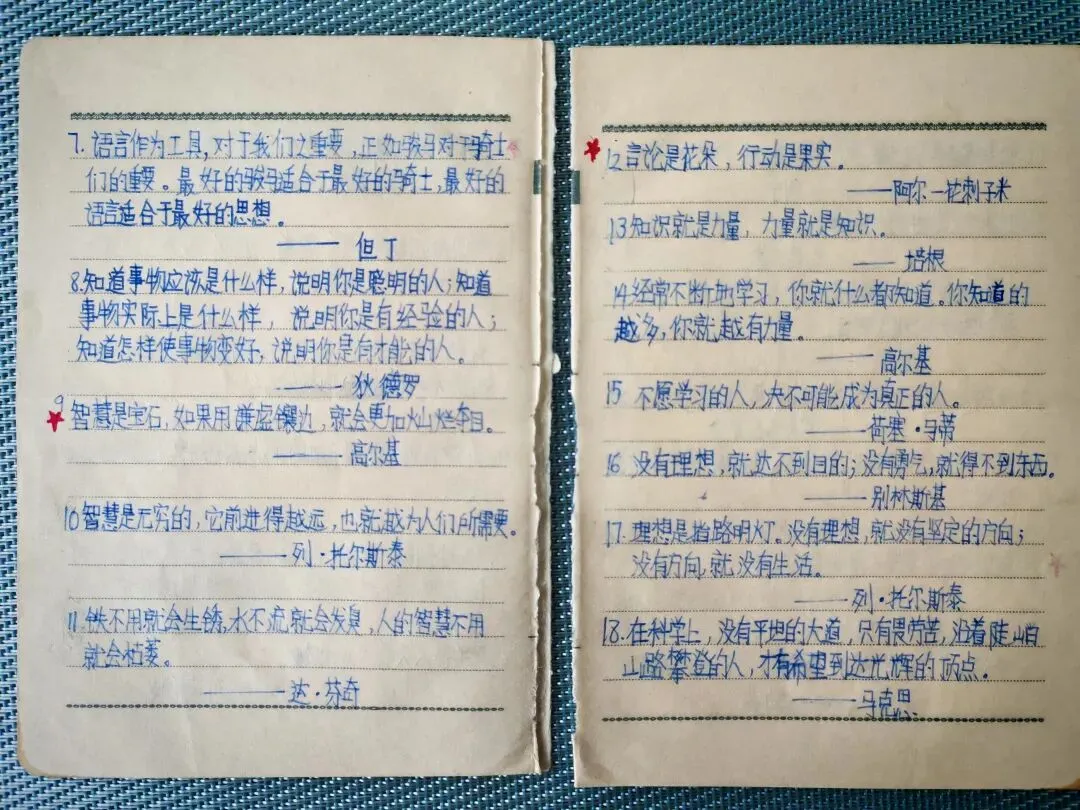 7. 语言作为工具,对于我们之重要,正如骏马对于骑士
们的重要。最好的骏马适合于最好的骑士,最好的
语言适合于最好的思想。
—— 但丁
8.知道事物应该是什么样,说明你是聪明的人;知道
事物实际上是什么样,说明你是有经验的人;
知道怎样使事物变好,说明你是有才能的人。
—— 狄德罗
9
智慧是宝石,如果用谦虚镶边,就会更加灿烂夺目。
—— 高尔基
10智慧是无穷的,它前进得越远,也就越为人们所需要。
—— 列·托尔斯泰
11.铁不用就会生锈,水不流就会发臭,人的智慧不用
就会枯萎。
—— 达·芬奇
12言论是花朵,行动是果实。
——阿尔一花刺子米
13知识就是力量,力量就是知识。
—— 培根
14.经常不断地学习,你就什么都知道。你知道的
越多,你就越有力量。
—— 高尔基
15 不愿学习的人,决不可能成为真正的人。
——荷塞·马蒂
16 没有理想,就达不到目的;没有勇气,就得不到东西。
——别林斯基
17.理想是指路明灯。没有理想,就没有坚定的方向;
没有方向,就没有生活。
—— 列·托尔斯泰
18.在科学上,没有平坦的大道,只有畏劳苦,沿着陡峭
山路攀登的人,才有希望到达光辉的顶点。
——马克思